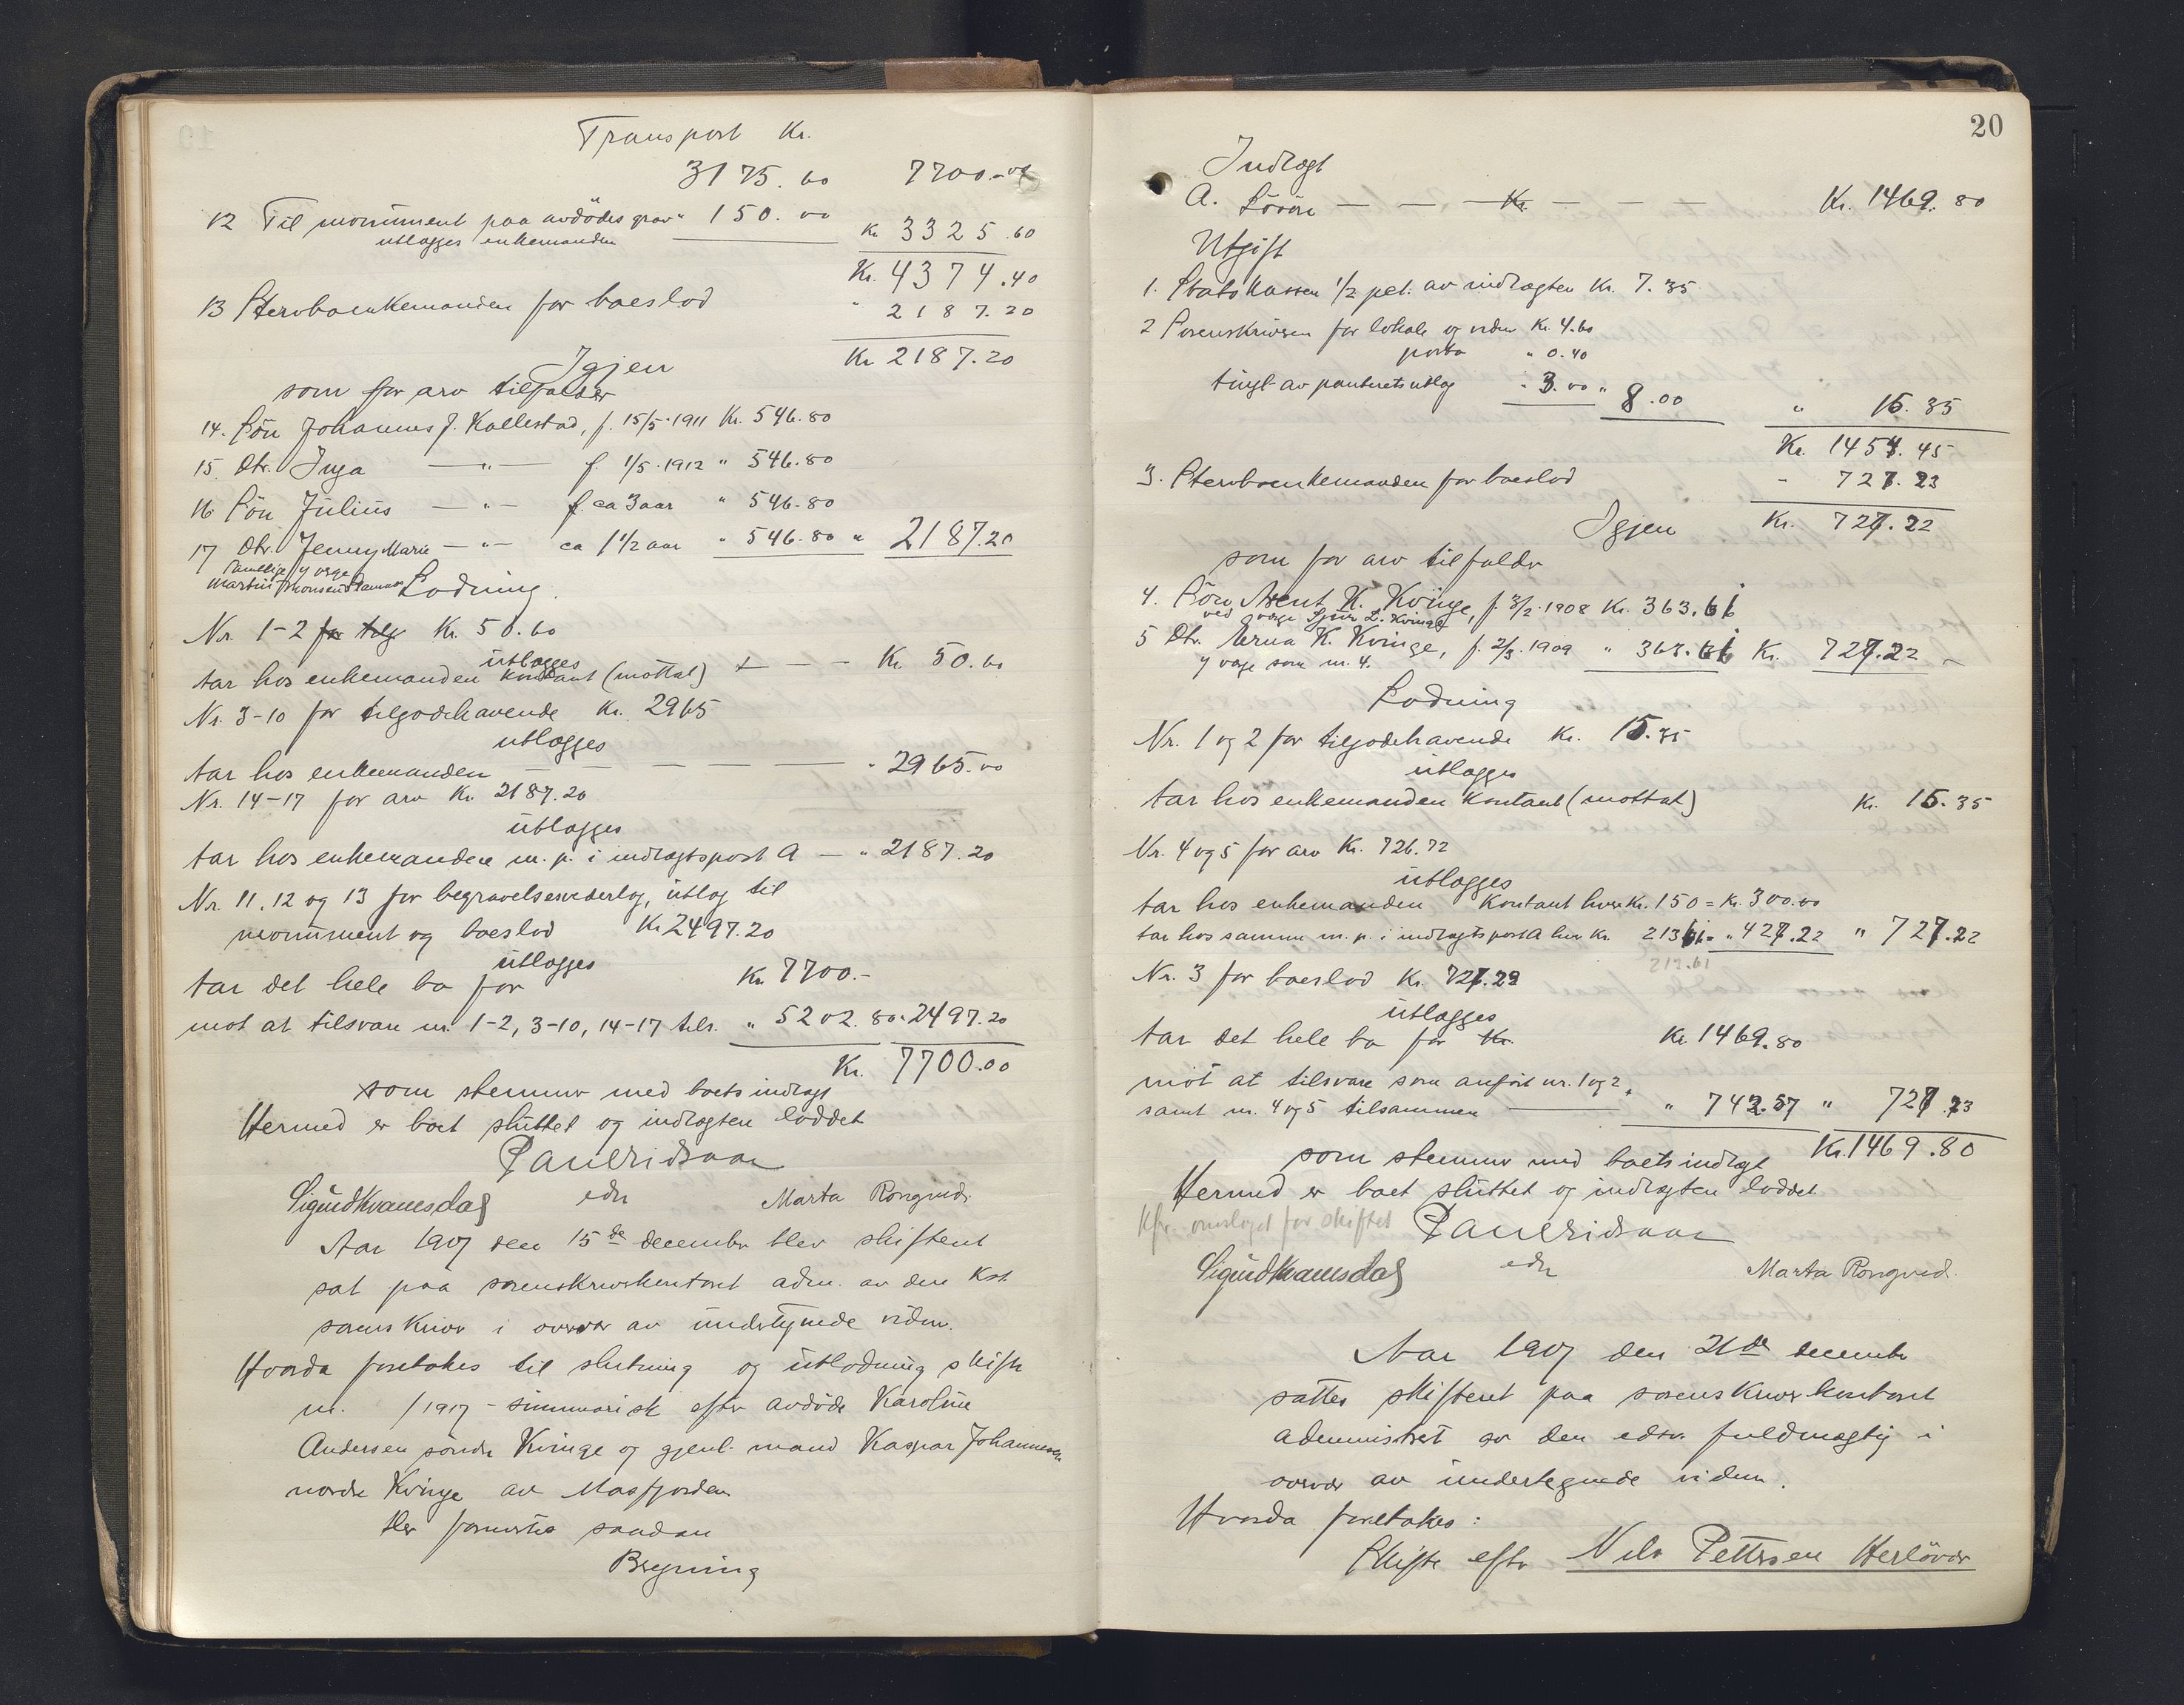 Transport Kr.
3175.60 7700.00
12 Til monument paa avdødes grav " 150.00
utlægges enkemanden Kr. 3325.60
Kr. 4374.40
13 Stervboenkemanden for boeslod " 2187.20
Igjen Kr 2187.20
som for arv tilfalder
14. Søn Johannes J. Kallestad, f. 15/5.1911 Kr. 546.80
15. Dtr. Inga — " — f. 1/5.1912 " 546.80
16 Søn Julius — " — f. ca 3 aar " 546.80
17 Dtr. Jenny Marie — " — ca 1 1/2 aar " 546.80 " 2187.20
samtlige v/ verge
Martin Monsen
Lodning.
Nr. 1-2 for tilg Kr. 50.60
utlægges
tar hos enkemanden kontant (mottat) — — — Kr 50.60
Nr. 3-10 for tilgodehavende Kr. 2965
utlægges
tar hos enkemanden — — — — — " 2965.00
Nr. 14-17 for arv Kr. 2187.20
utlægges
tar hos enkemanden m. p. i indtægtspost A — " 2187.20
Nr. 11, 12 og 13 for begravelsesvederlag, utlæg til
monument og boeslod Kr 2497.20
utlægges
tar det hele bo for Kr. 7700.-
mot at tilsvare nr. 1-2, 3-10, 14-17 tils. " 5202.80 " 2497.20
Kr. 7700.00
som stemmer med boets indtægt
Hermed er boet sluttet og indtægten loddet
Paul Eridsaar
Sigurd Kvamsdal edsv Marta Rongved.
Aar 1917 den 15de december blev skifteret
sat paa sorenskriverkontoret adm. av den kst.
sorenskriver i overvær av undertegnede vidner.
Hvorda foretokes til slutning og utlodning skifte
nr. /1917 - summarisk efter avdøde Karoline
Andersen søndre Kvinge og gjenl. mand Kaspar Johannesen
nordre Kvinge av Masfjorden
Der forfattes saadan
Beregning
20
Indtægt
A. Løsøre — — — Kr. — — — — Kr. 1469.80
Utgift
1. Statskassen 1/2 pct. av indtægten Kr. 7.35
2 Sorenskriveren for lokale og vidner Kr. 4.60
porto " 0.40
tingl. av panteretsutlæg " 3.00 " 8.00 " 15.35
Kr. 1454.45
3. Stervboenkemanden for boeslod - 727.23
Igjen Kr. 727.22
som for arv tilfalder
4. Søn Arent K. Kvinge, f. 3/2.1908 Kr. 363.61
ved verge Sjur L. Kvinge
5 Dtr. Erna K. Kvinge, f. 2/3.1909 " 363.61 Kr. 727.22
v/ verge som nr. 4.
Lodning
Nr. 1 og 2 for tilgodehavende Kr. 15.35
utlægges
tar hos enkemanden kontant (mottat) Kr. 15.35
Nr. 4 og 5 for arv Kr. 726.72
utlægges
tar hos enkemanden kontant hver Kr. 150 = Kr. 300.00
tar hos samme m. p. i indtægtspost A hver Kr. 213.61 = " 427.22 " 727.22
213.61
Nr. 3 for boeslod Kr. 727.23
utlægges
tar det hele bo for Kr. Kr. 1469.80
mot at tilsvare som anført nr. 1 og 2,
samt nr. 4 og 5 tilsammen — " 742.57 " 727.23
Kr. 1469.80
som stemmer med boets indtægt
Hermed er boet sluttet og indtægten loddet
Kfr. omslaget for skiftet
Paul Eridsaar
Sigurd Kvamsdal edsv Marta Rongved.
Aar 1917 den 21de december
sattes skifteret paa sorenskriverkontoret
administrert av den edsv. fuldmægtig i
overvær av undertegnede vidner.
Hvorda foretokes:
Skifte efter Nils Pettersen Herløver